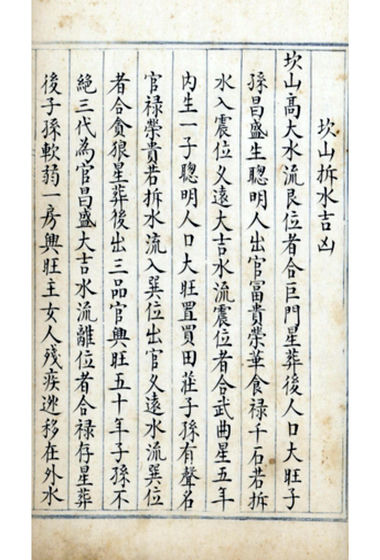 坎山拆水吉凶
坎山高大水流艮位者合巨門星葬後人口大旺子
孫昌盛生聰明人出官冨貴榮華食祿千石若拆
水入震位久遠大吉水流震位者合武曲星五年
內生一子聰明人口大旺置買田莊子孫有聲名
官祿榮貴若拆水流入巽位出官久遠水流巽位
者合貪狼星葬後出三品官興旺五十年子孫不
絕三代為官昌盛大吉水流離位者合祿存星葬
後子孫軟弱一房興旺主女人殘疾迯移在外水